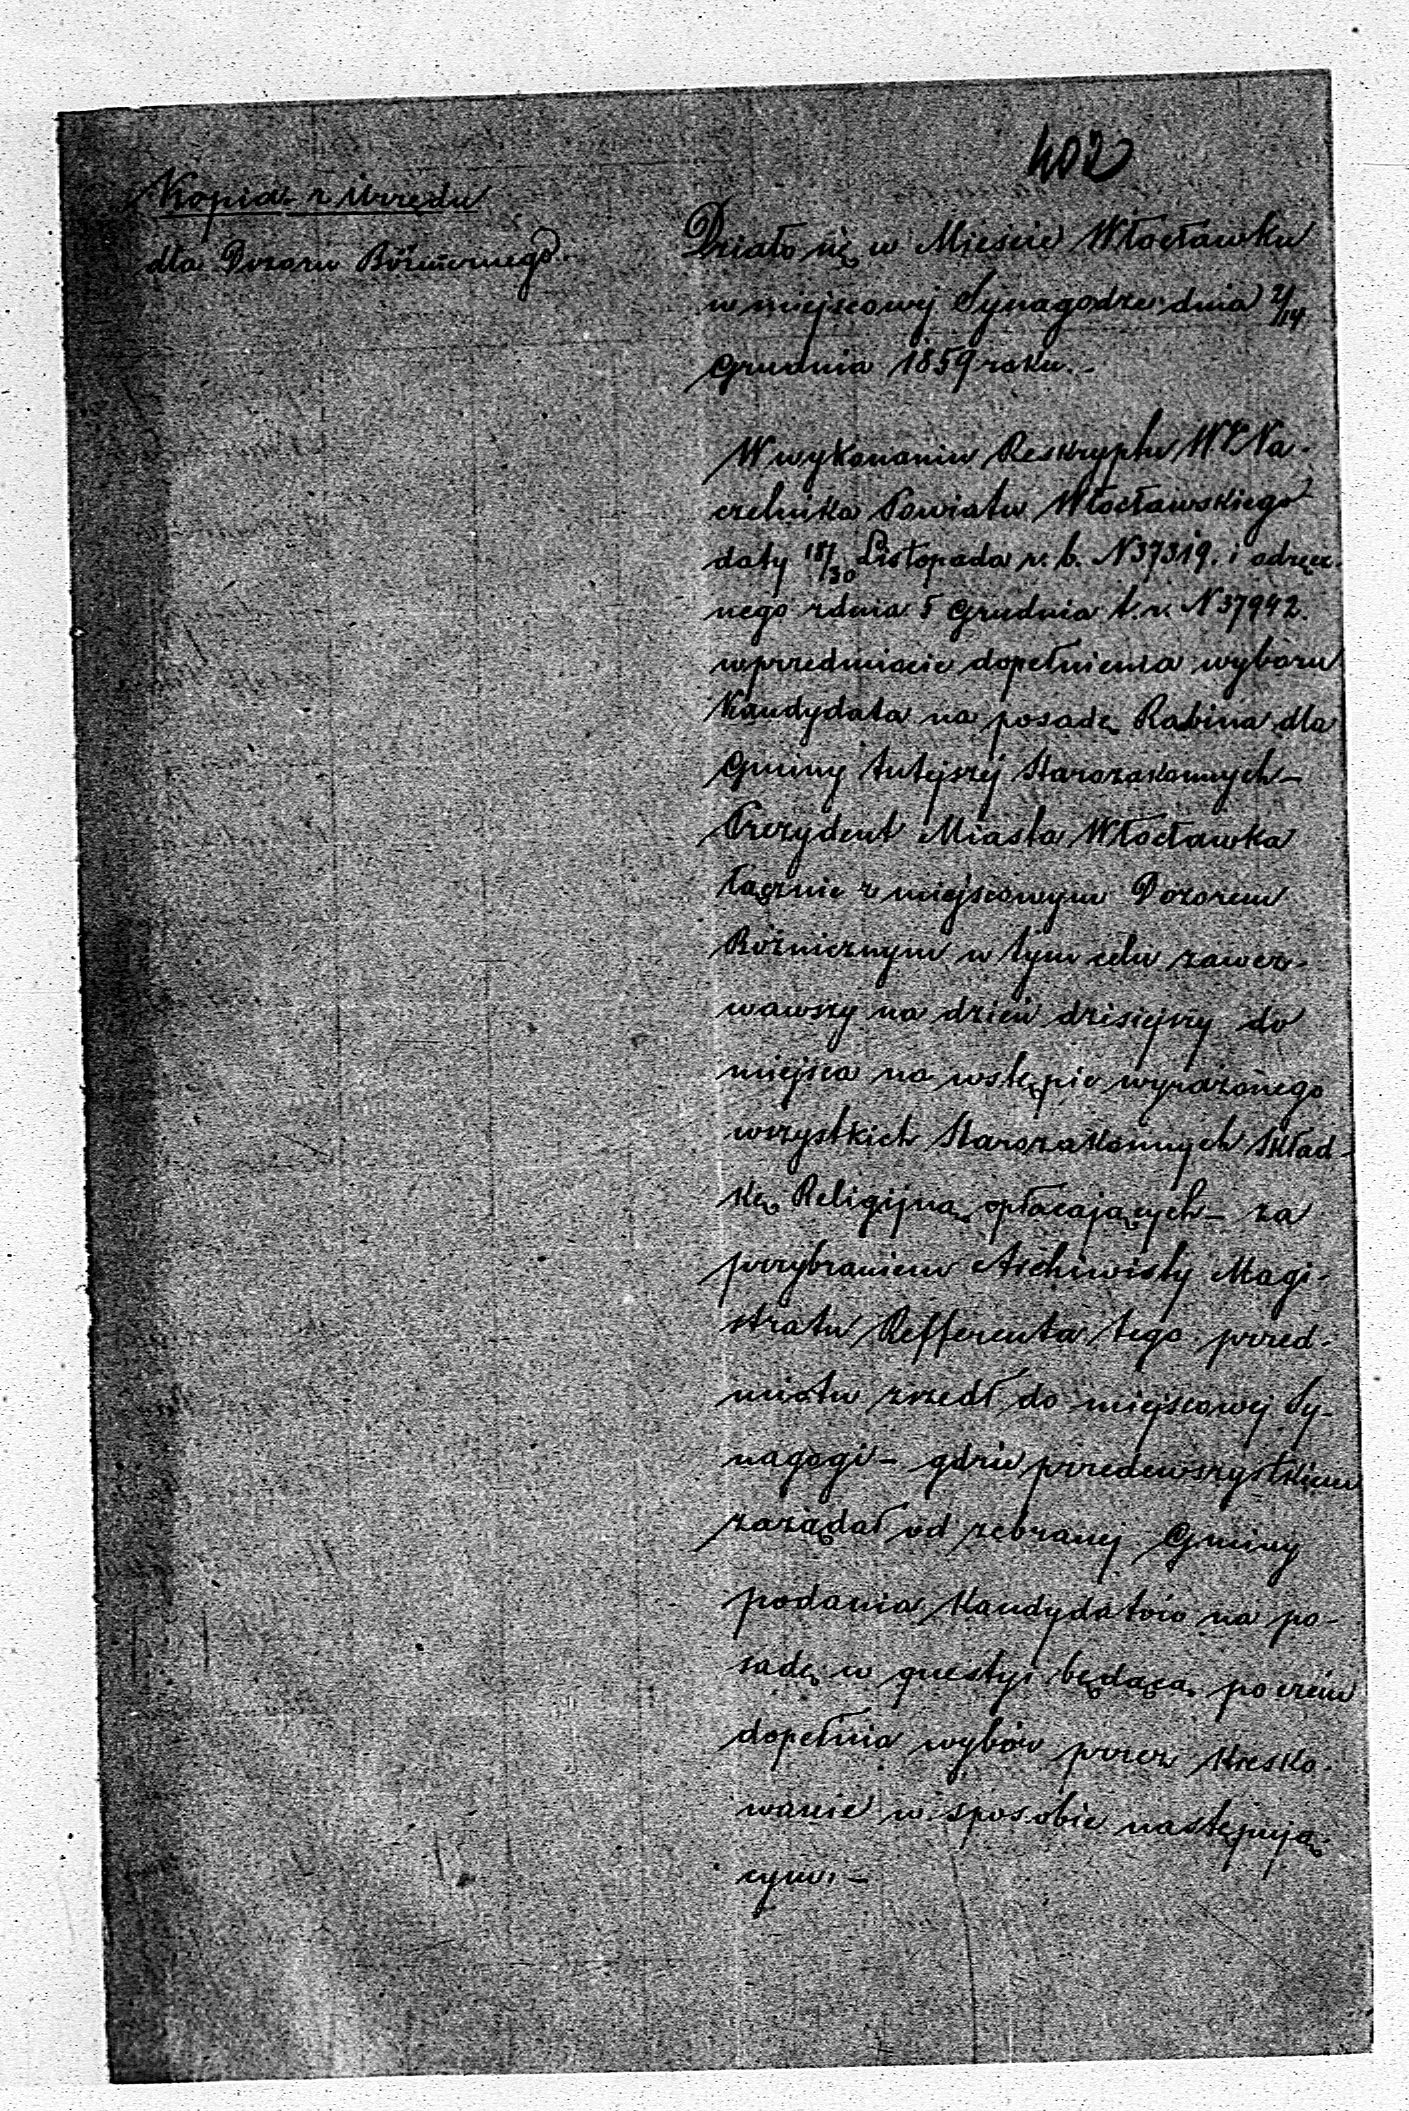 402
Kopia z Urzędu
dla Dozoru Bóżnicznego
Działo się w Mieście Włocławku
w miejscowej Synagodze dnia 2/14
Grudnia 1859 roku.-
W wykonaniu Reskryptu WP Na-
czelnika Powiatu Włocławskiego
daty 18/30 Listopada r. b. N 37319. i odręcz-
nego z dnia 5 Grudnia t. r. N 37942.
w przedmiocie dopełnienia wyboru
Kandydata na posadę Rabina dla
Gminy tutejszej Starozakonnych-
Prezydent Miasta Włocławka
łącznie z miejscowym Dozorem
Bóżnicznym w tym celu zawez-
wawszy na dzień dzisiejszy do
miejsca na wstępie wyrażonego
wszystkich Starozakonnych Skład-
kę Religijną opłacających - za
przybraniem Archiwisty Magi-
stratu Refferenta tego przed-
miotu zszedł do miejscowej Sy-
nagogi - gdzie przedewszystkiem
zażądał od zebranej Gminy
podania Kandydatów na po-
sadę w questyi będącą, po czém
dopełnia wybór przez Kresko-
wanie w sposobie następują-
cym. -